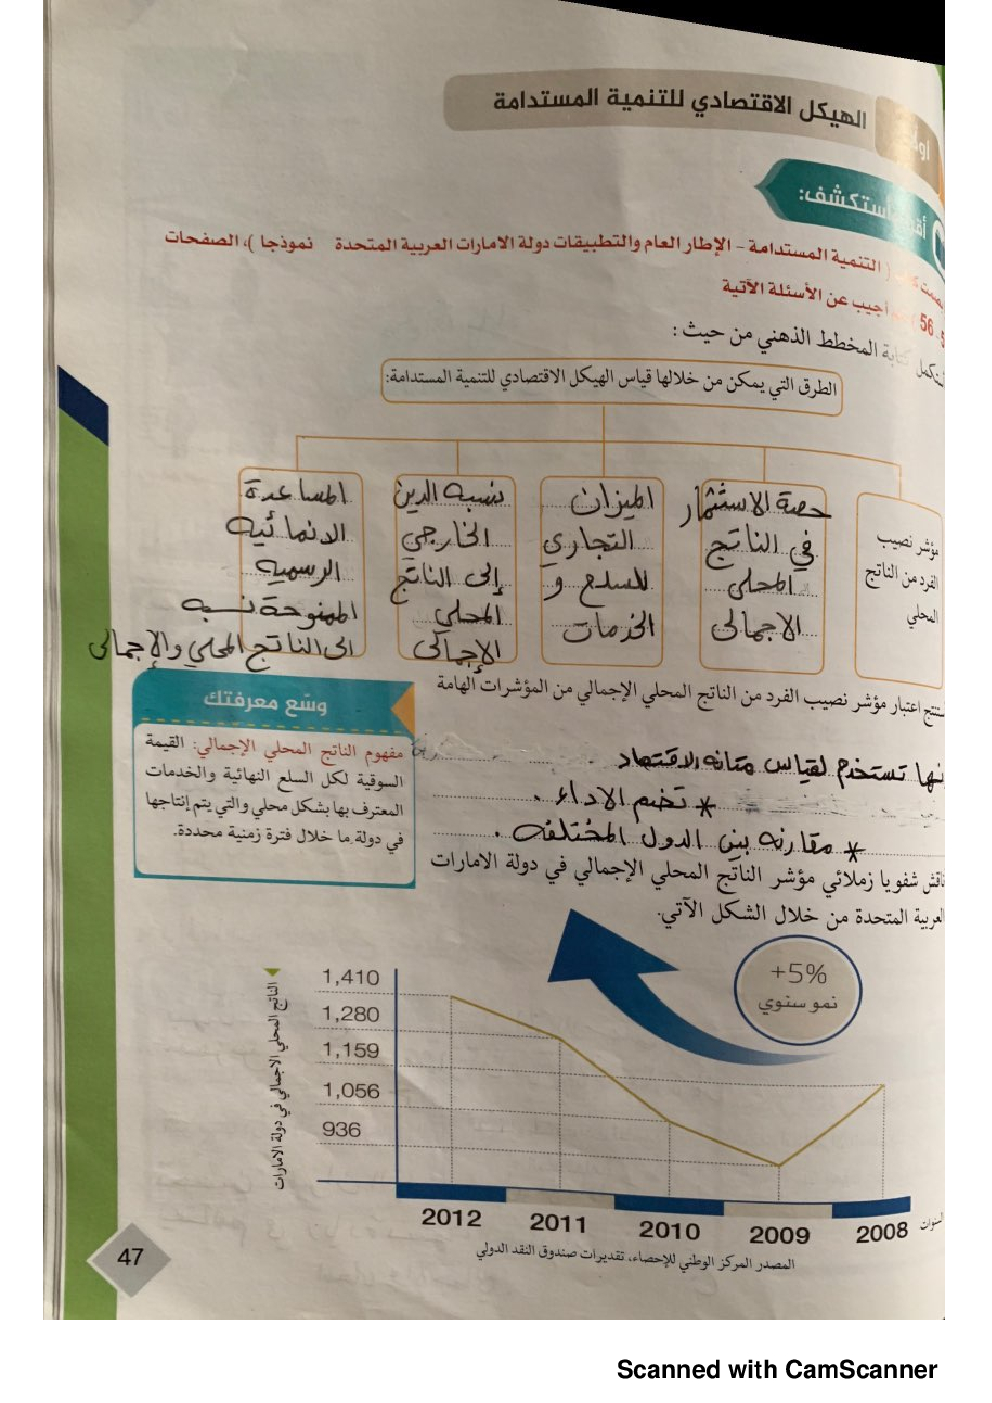 الهيكل الاقتصادي للتنمية المستدامة
أستكشف:
( التنمية المستدامة - الإطار العام والتطبيقات دولة الامارات العربية المتحدة نموذجا )، الصفحات
56 أجيب عن الأسئلة الآتية
المخطط الذهني من حيث :
الطرق التي يمكن من خلالها قياس الهيكل الاقتصادي للتنمية المستدامة:
مؤشر نصيب
الفرد من الناتج
المحلي
حصة الاستثمار
في الناتج
المحلي
الاجمالى
الميزان
التجاري
للسلع و
الخدمات
نسبه الدين
الخارجي
إلى الناتج
المحلي
الإجمالى
المساعدة
الانمائيه
الرسميه
الممنوحة نسبه
الى الناتج المحلي والإجمالى
اعتبار مؤشر نصيب الفرد من الناتج المحلي الإجمالي من المؤشرات الهامة
تستخدم لقياس متانه الاقتصاد
* تضخم الاداء .
* مقارنه بين الدول المختلفه .
وسّع معرفتك
مفهوم الناتج المحلي الإجمالي: القيمة
السوقية لكل السلع النهائية والخدمات
المعترف بها بشكل محلي والتي يتم إنتاجها
في دولة ما خلال فترة زمنية محددة.
ناقش شفويا زملائي مؤشر الناتج المحلي الإجمالي في دولة الامارات
العربية المتحدة من خلال الشكل الآتي.
+5%
نمو سنوي
الناتج المحلي الاجمالي في دولة الامارات
1,410
1,280
1,159
1,056
936
2012 2011 2010 2009 2008
السنوات
المصدر المركز الوطني للإحصاء، تقديرات صندوق النقد الدولي
47
Scanned with CamScanner